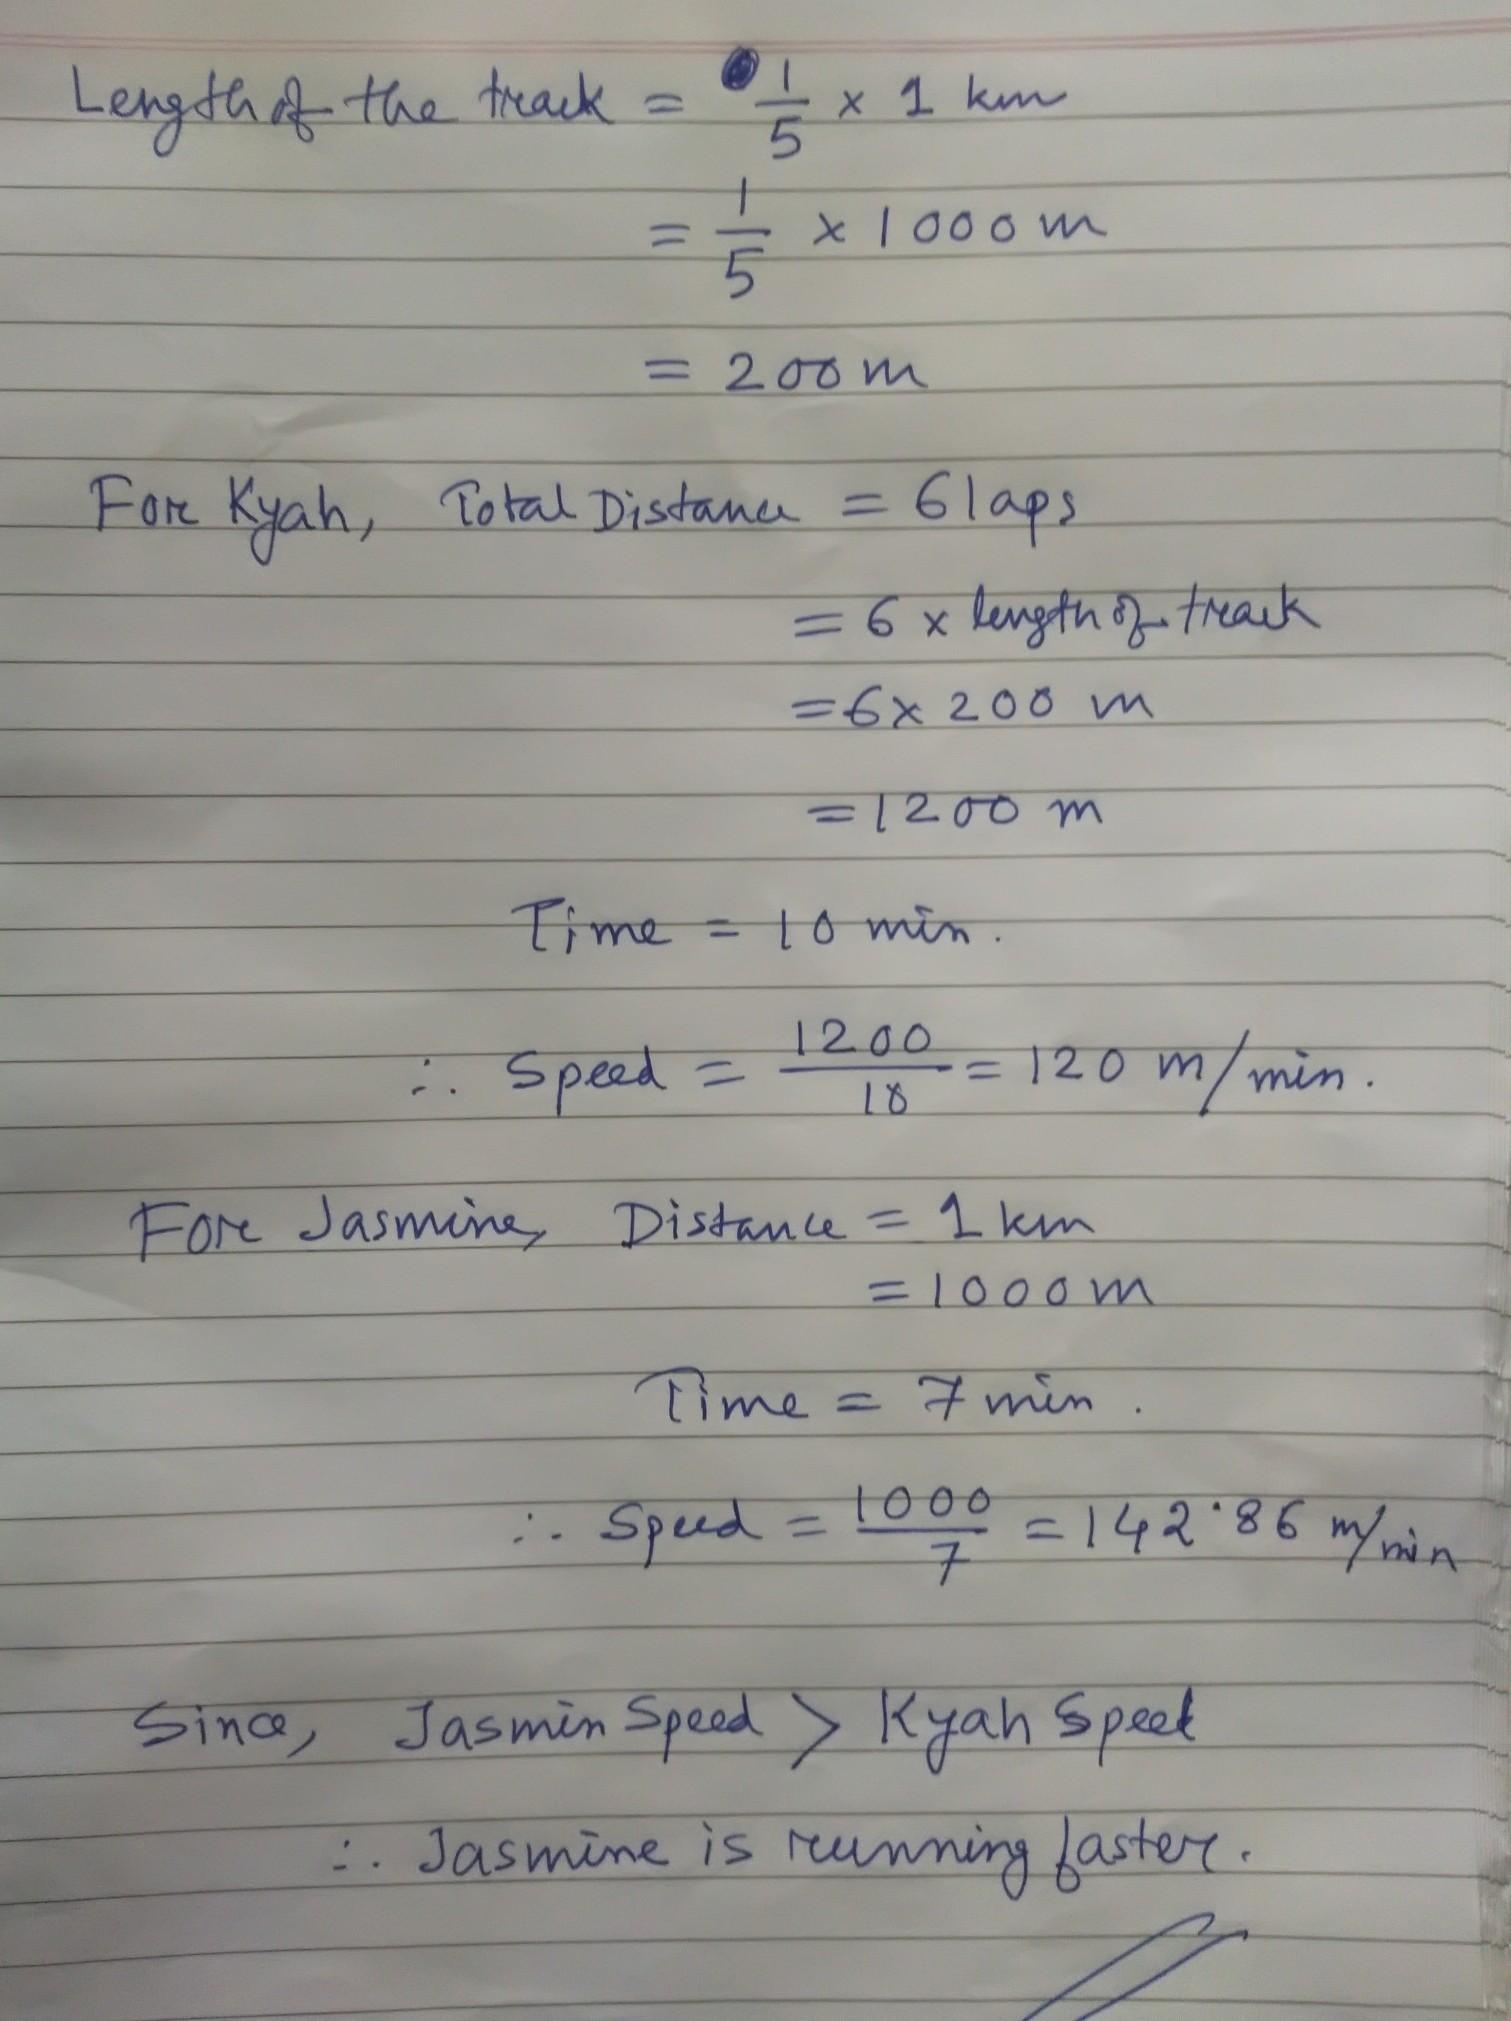 Length of the track = 1/5 × 1 km
= 1/5 × 1000 m
= 200 m
For Kyah, Total Distance = 6 laps
= 6 × length of track
= 6 × 200 m
= 1200 m
Time = 10 min.
∴ Speed = 1200/10 = 120 m/min.
For Jasmine, Distance = 1 km
= 1000 m
Time = 7 min.
∴ Speed = 1000/7 = 142.86 m/min
Since, Jasmin Speed > Kyah Speed
∴ Jasmine is running faster.